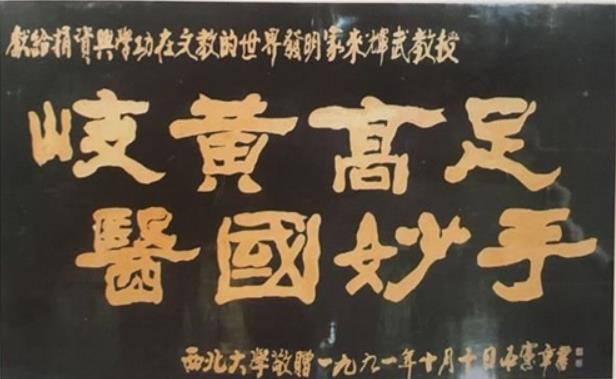 獻給捐資興學功在文教的世界發明家來輝武教授
岐黄高足
醫國妙手
西北大學敬贈一九九一年十月十日